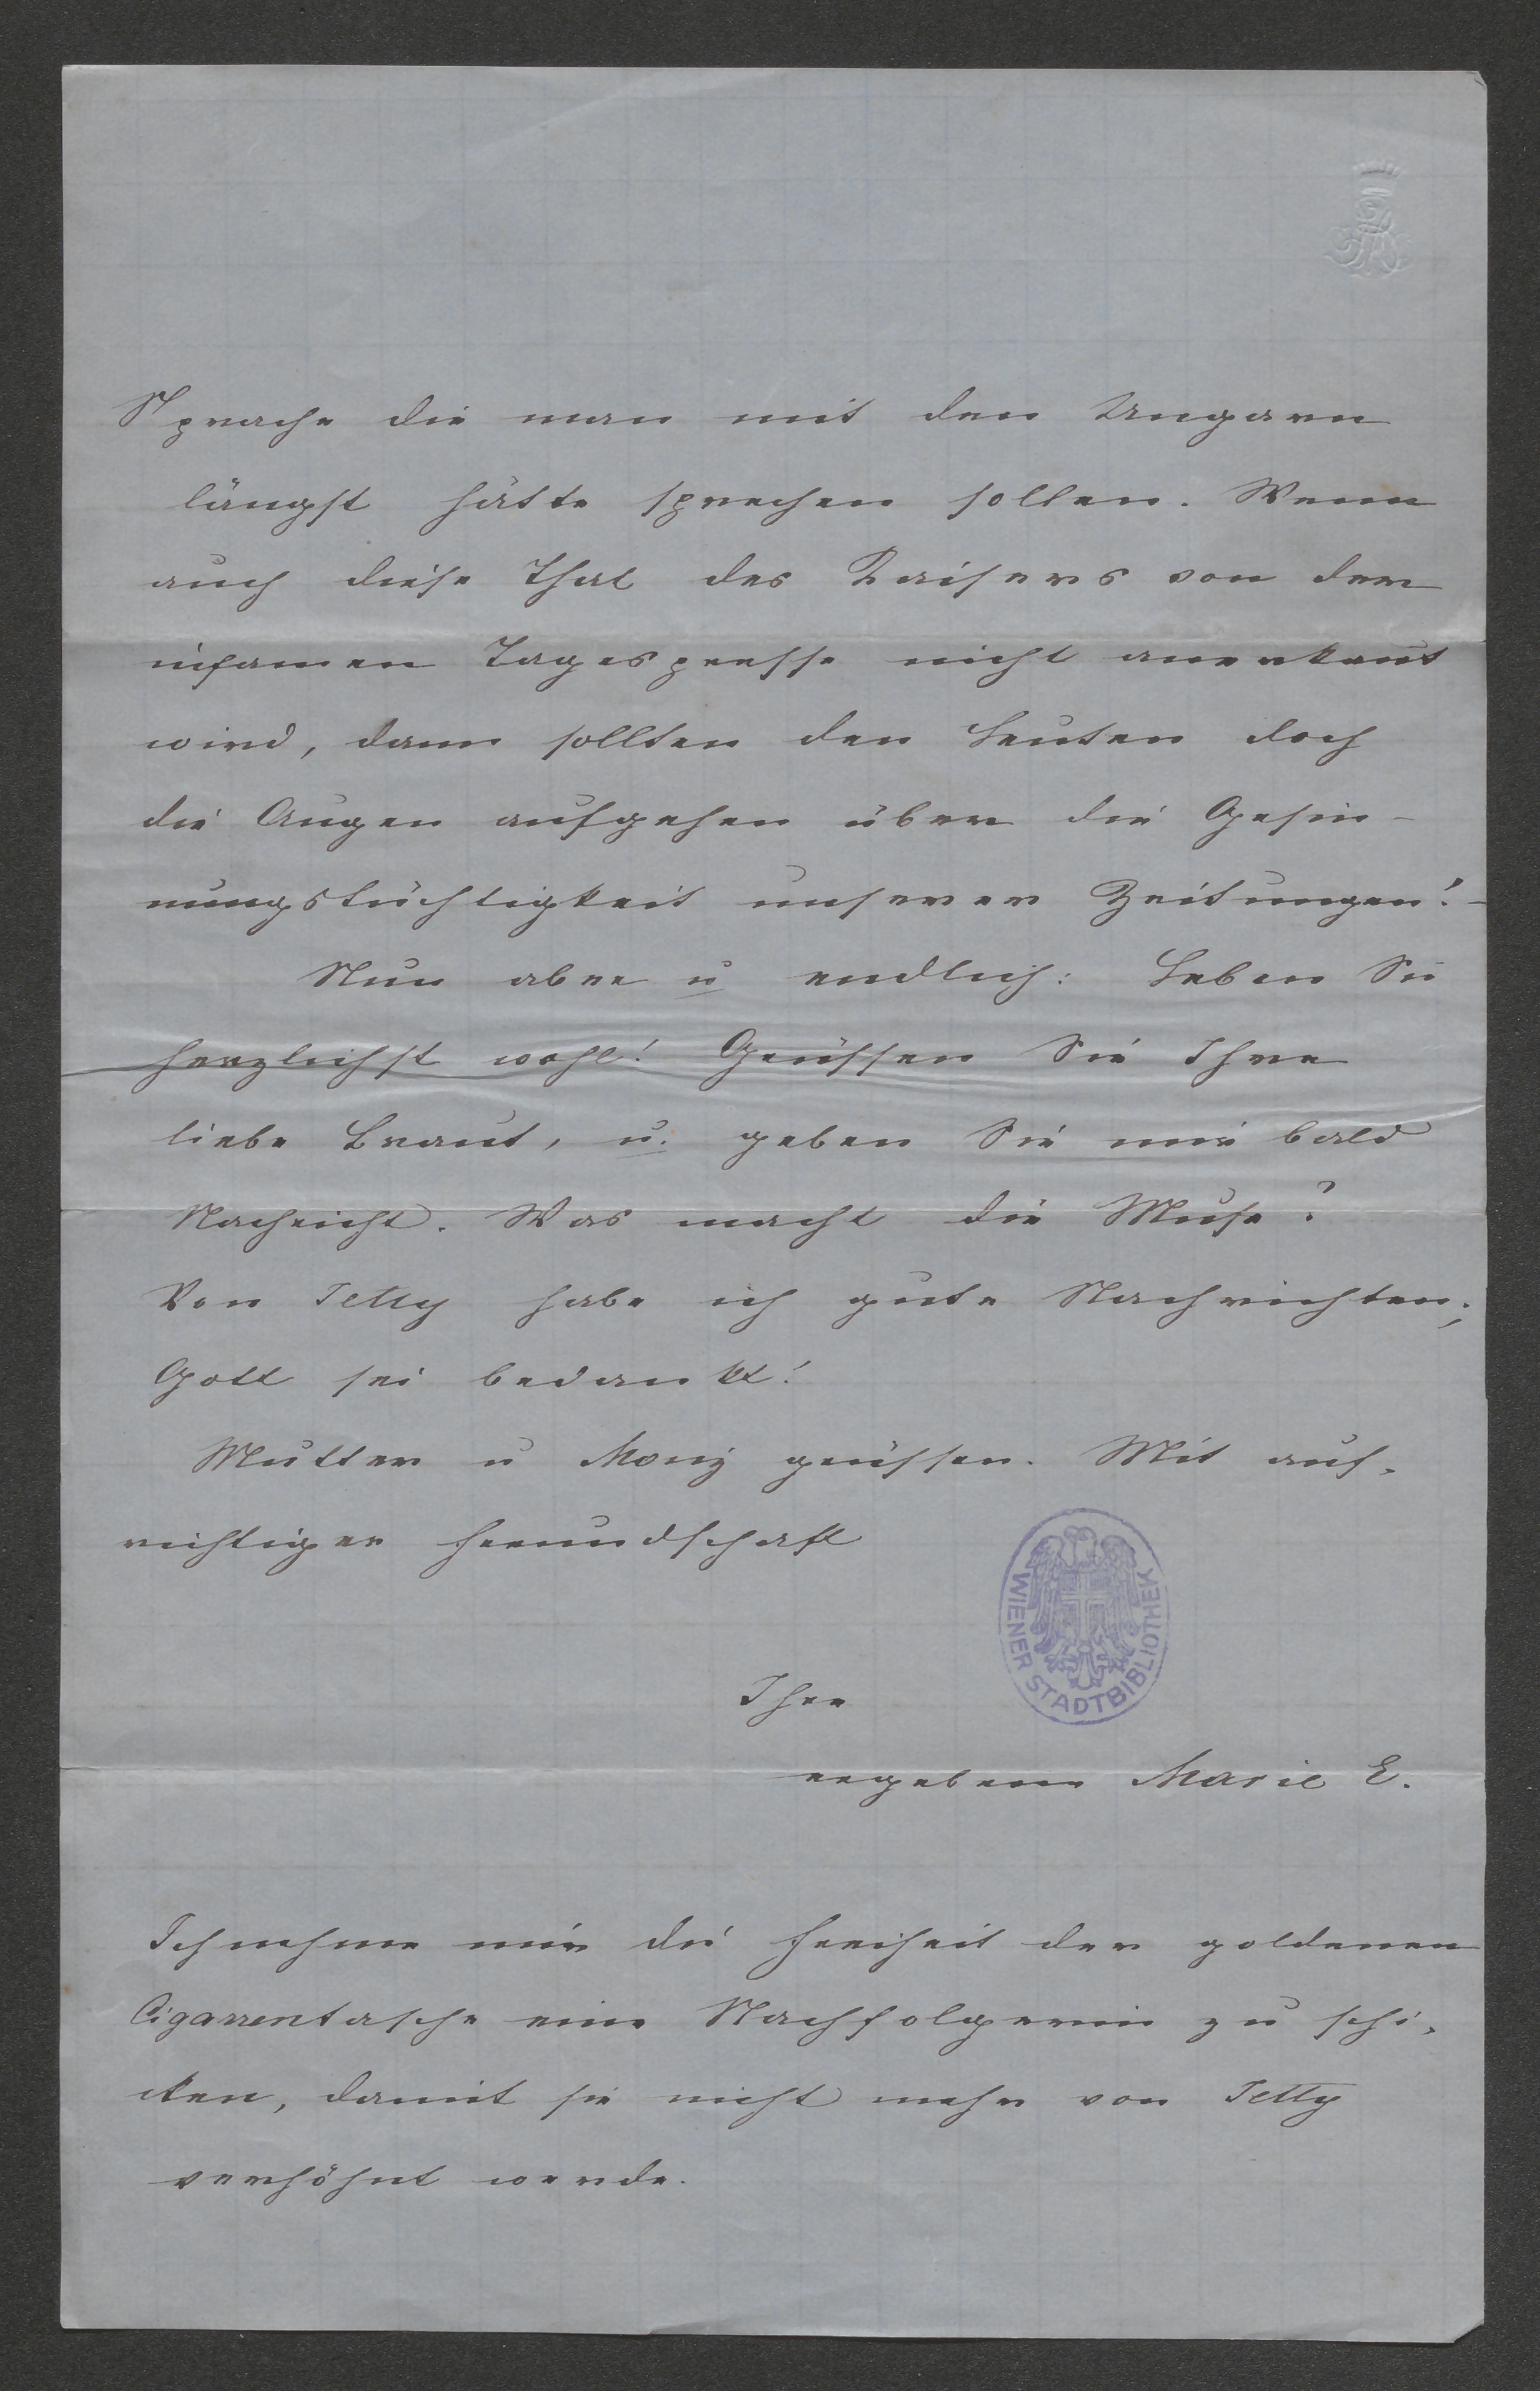 Sprache die man mit den Ungarn
längst hätte sprechen sollen. Wenn
auch diese That des Kaisers von der
infamen Tagespresse nicht anerkant
wird, dann sollten den Leuten doch
die Augen aufgehen über die Gesin-
nungstüchtigkeit unserer Zeitungen! -
Nun aber u endlich: Leben Sie
herzlichst wohl! Grüssen Sie Ihre
liebe Braut, u. geben Sie mir bald
Nachricht. Was macht die Muse?
Von Jetty habe ich gute Nachrichten;
Gott sei bedankt!
Mutter u Moriz grüssen. Mit auf-
richtiger Freundschaft
WIENER STADTBIBLIOTHEK
Ihre
ergebene Marie E.
Ich nehme mir die Freiheit der goldenen
Cigarrentasche eine Nachfolgerin zu schi-
cken, damit sie nicht mehr von Jetty
verhöhnt werde.